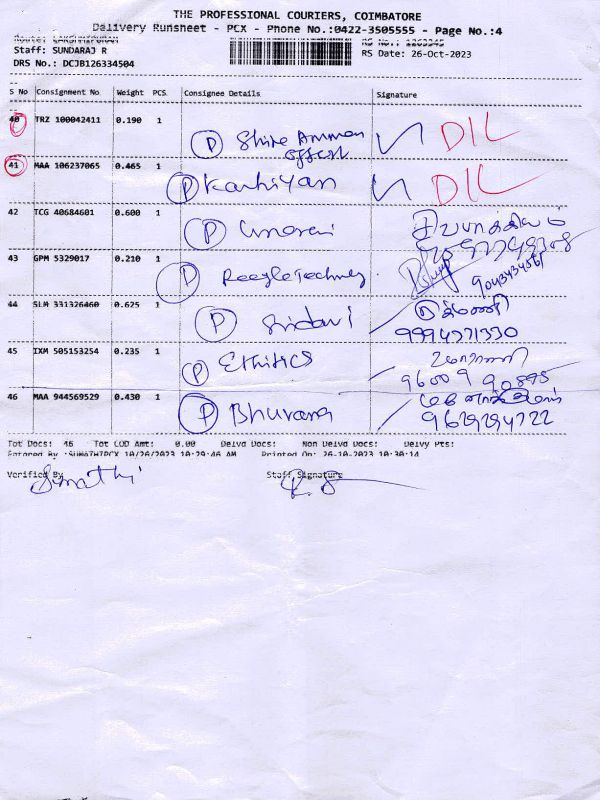 THE PROFESSIONAL COURIERS, COIMBATORE
Delivery Runsheet - PCX - Phone No.:0422-3505555 - Page No.:4
Route: LAKSHMIPURAM
Staff: SUNDARAJ R
RS Date: 26-Oct-2023
DRS No.: DCJB126334504
S No Consignment No Weight PCS Consignee Details Signature
40 TRZ 100042411 0.190 1
P Shire Amman DIL
offset
41 MAA 106237065 0.465 1
P Karthiyan DIL
42 TCG 40684601 0.600 1
P
43 GPM 5329017 0.210 1
P 9043434561
44 SLM 331326460 0.625 1
P
9994371330
45 IXM 505153254 0.235 1
P Ethitics
96009 90895
46 MAA 944569529 0.430 1
P Bhuvana
9629294722
Tot Docs: 46 Tot COD Amt: 0.00 Delvd Docs: Non Delvd Docs: Delvy Pts:
Entered By :SUMATHIPCX 10/26/2023 10:29:46 AM Printed On: 26-10-2023 10:30:14
Verified By Staff Signature
Sumathi